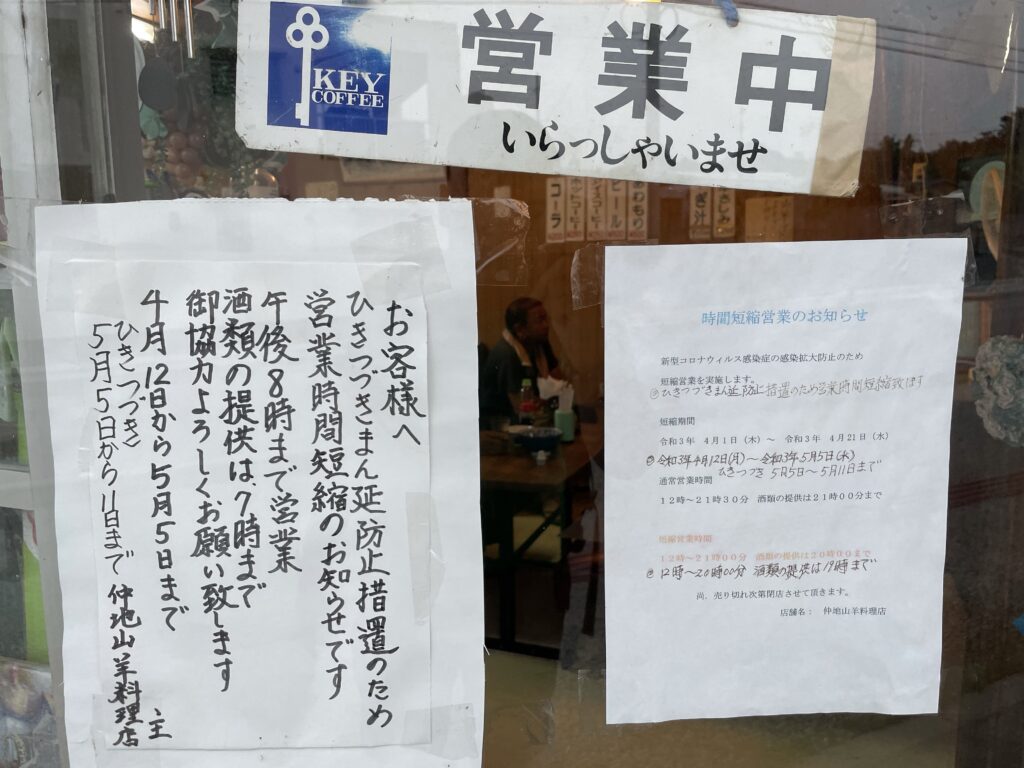 KEY
COFFEE
営業中
いらっしゃいませ
コーラ
ホットコーヒー
アイスコーヒー
ビール
あわもり
さしみ
ぎ汁
お客様へ
ひきつづきまん延防止措置のため
営業時間短縮のお知らせです
午後8時まで営業
酒類の提供は、7時まで
御協力よろしくお願い致します
4月12日から5月5日まで
ひきつづき
5月5日から11日まで
仲地山羊料理店 主
時間短縮営業のお知らせ
新型コロナウィルス感染症の感染拡大防止のため
短縮営業を実施します。
◎ひきつづきまん延防止措置のため営業時間短縮致ます
短縮期間
令和3年 4月1日（木）～ 令和3年 4月21日（水）
◎令和3年4月12日(月)～令和3年5月5日(水)
ひきつづき 5月5日～5月11日まで
通常営業時間
12時～21時30分 酒類の提供は21時00分まで
短縮営業時間
12時～21時00分 酒類の提供は20時00まで
◎12時～20時00分 酒類の提供は19時まで
尚、売り切れ次第閉店させて頂きます。
店舗名： 仲地山羊料理店